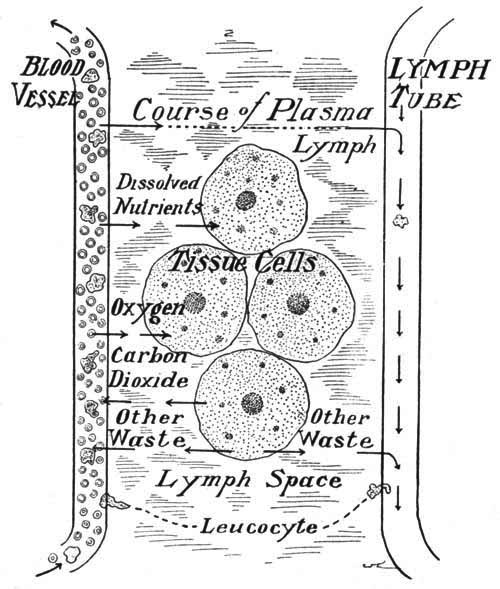 2
BLOOD
VESSEL
LYMPH
TUBE
Course of Plasma
Lymph
Dissolved
Nutrients
Tissue Cells
Oxygen
Carbon
Dioxide
Other
Waste
Other
Waste
Lymph Space
Leucocyte